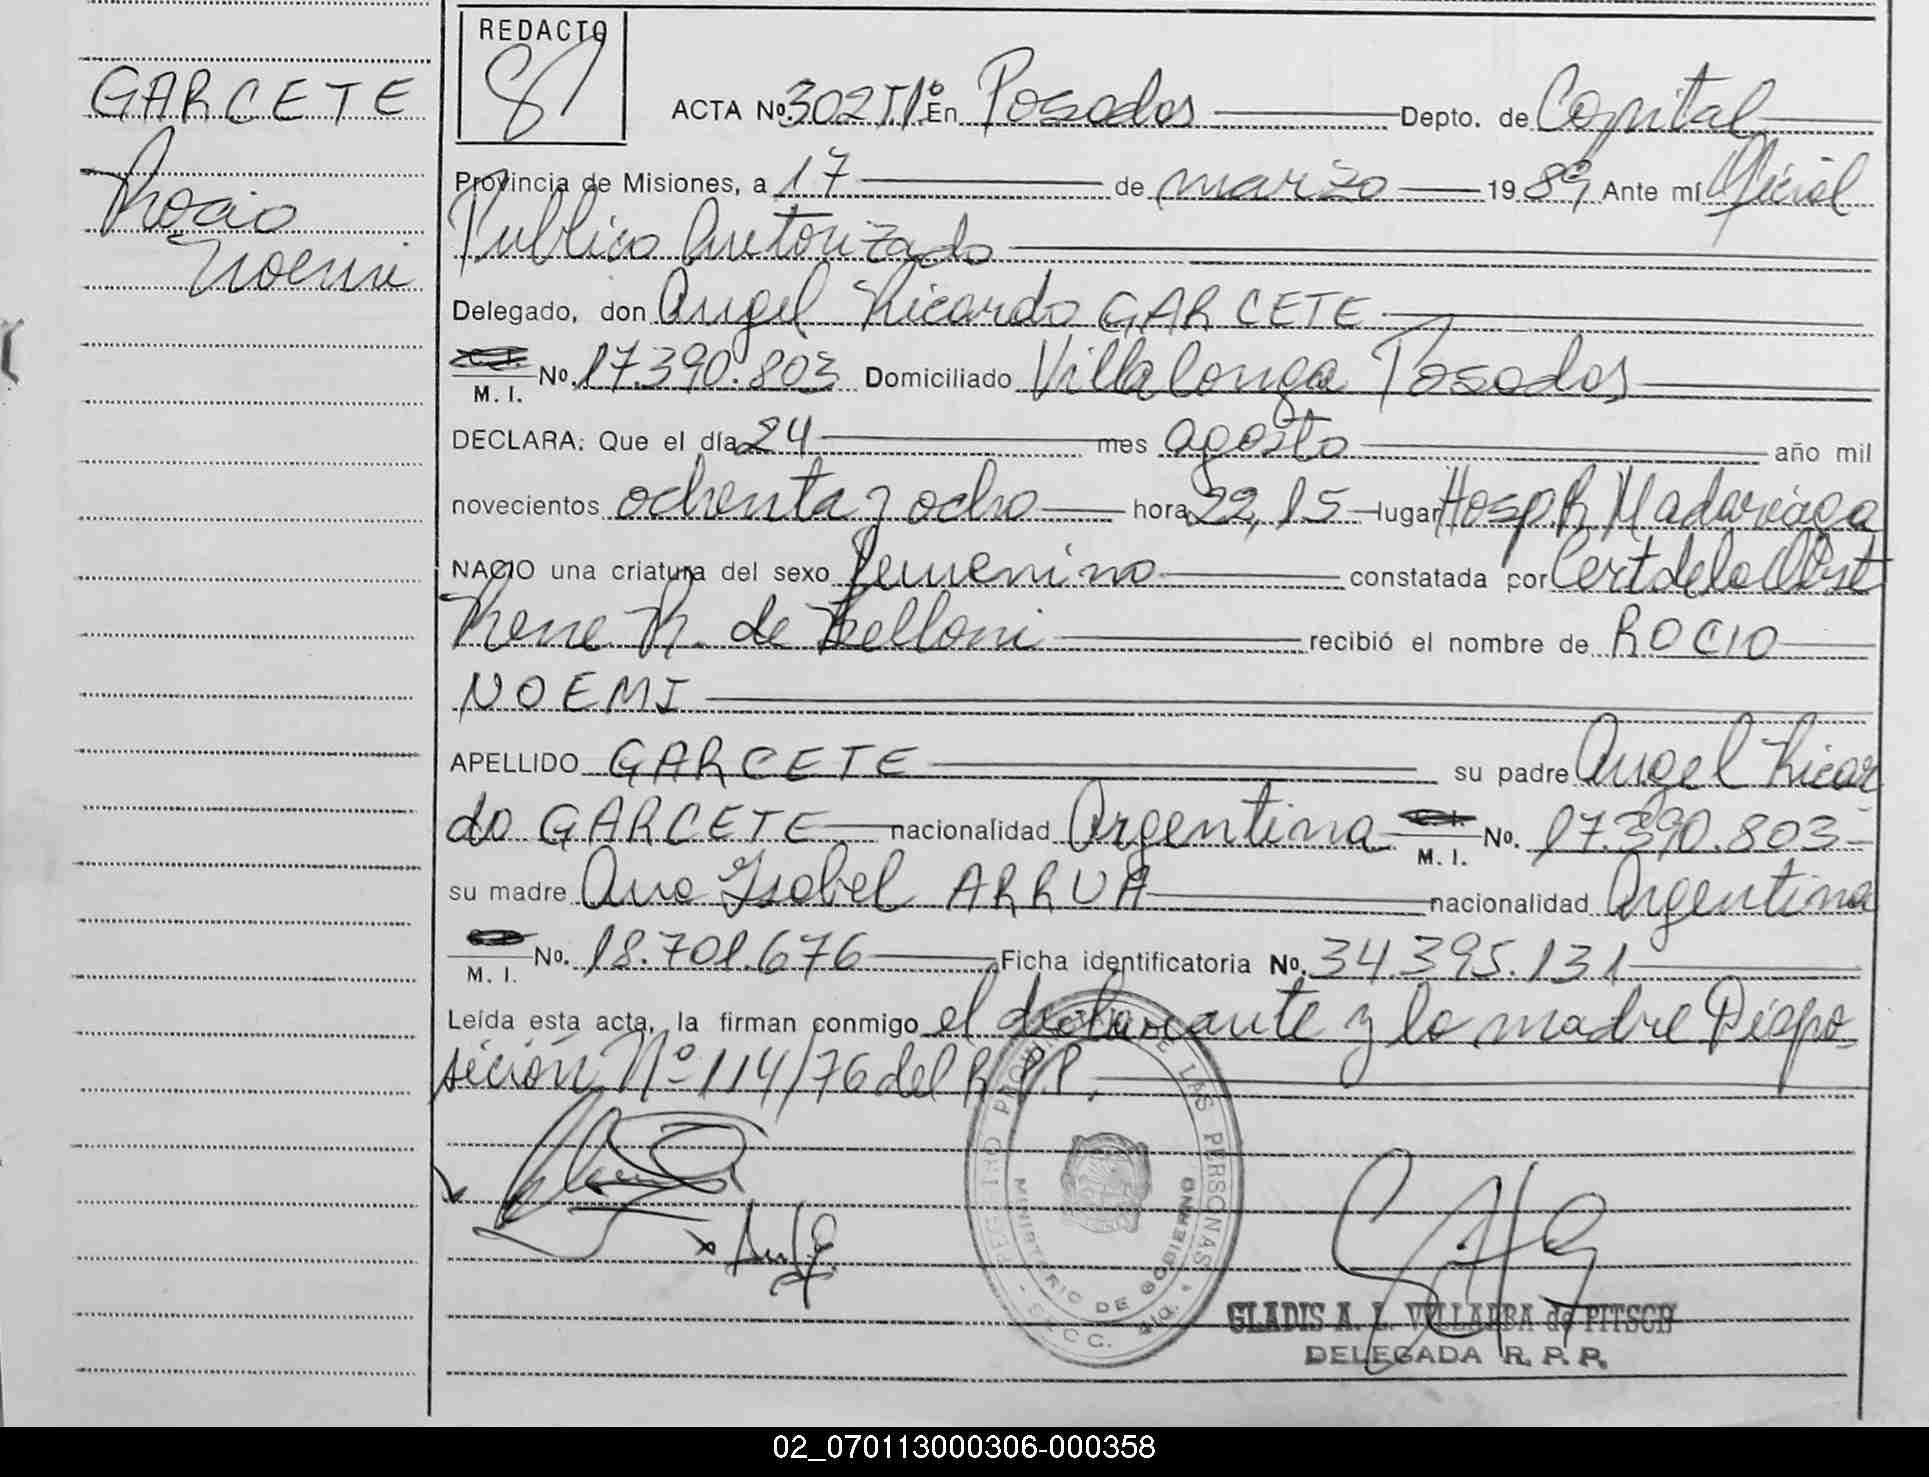 REDACTO
GARCETE
Rocio
Noemi
ACTA Nº 302 T1º En Posadas Depto. de Capital
Provincia de Misiones, a 17 de marzo 1989 Ante mí Oficial
Publico Autorizado
Delegado, don Angel Ricardo GARCETE
M. I. No. 17.390.803 Domiciliado Villalonga Posadas
DECLARA: Que el día 24 mes agosto año mil
novecientos ochenta y ocho hora 22,15 lugar Hosp. R Madariaga
NACIO una criatura del sexo femenino constatada por Cert de la Obst
Rene R. de Belloni recibió el nombre de ROCIO
NOEMI
APELLIDO GARCETE su padre Angel Ricar
do GARCETE nacionalidad Argentina M. I. No. 17.390.803
su madre Ana Isabel ARRUA nacionalidad Argentina
M. I. No. 18.701.676 Ficha identificatoria No. 34.395.131
Leída esta acta, la firman conmigo el declarante y la madre Dispo-
sición Nº 114/76 del R.P.P.
REGISTRO PROVINCIAL DE LAS PERSONAS
MINISTERIO DE GOBIERNO
GLADIS A. L. VILLALBA de PITSCH
DELEGADA R. P. P.
02_070113000306-000358